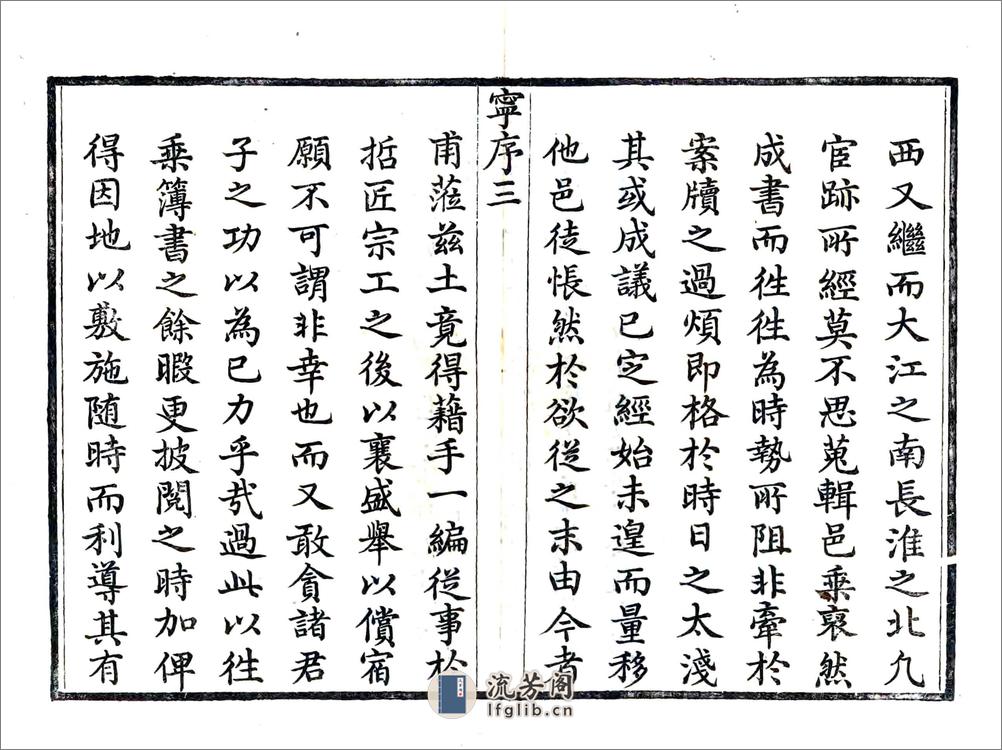 西又繼而大江之南長淮之北凢
宦跡所經莫不思蒐輯邑乗裒然
成書而徃徃為時勢所阻非牽於
案牘之過煩即格於時日之太淺
其或成議已定經始未遑而量移
他邑徒悵然於欲從之末由今者
寧序三
甫蒞茲土竟得藉手一編從事於
哲匠宗工之後以襄盛舉以償宿
願不可謂非幸也而又敢貪諸君
子之功以為已力乎㢤過此以徃
乗簿書之餘暇更披閱之時加俾
得因地以敷施随時而利導其有
流芳阁
lfglib.cn